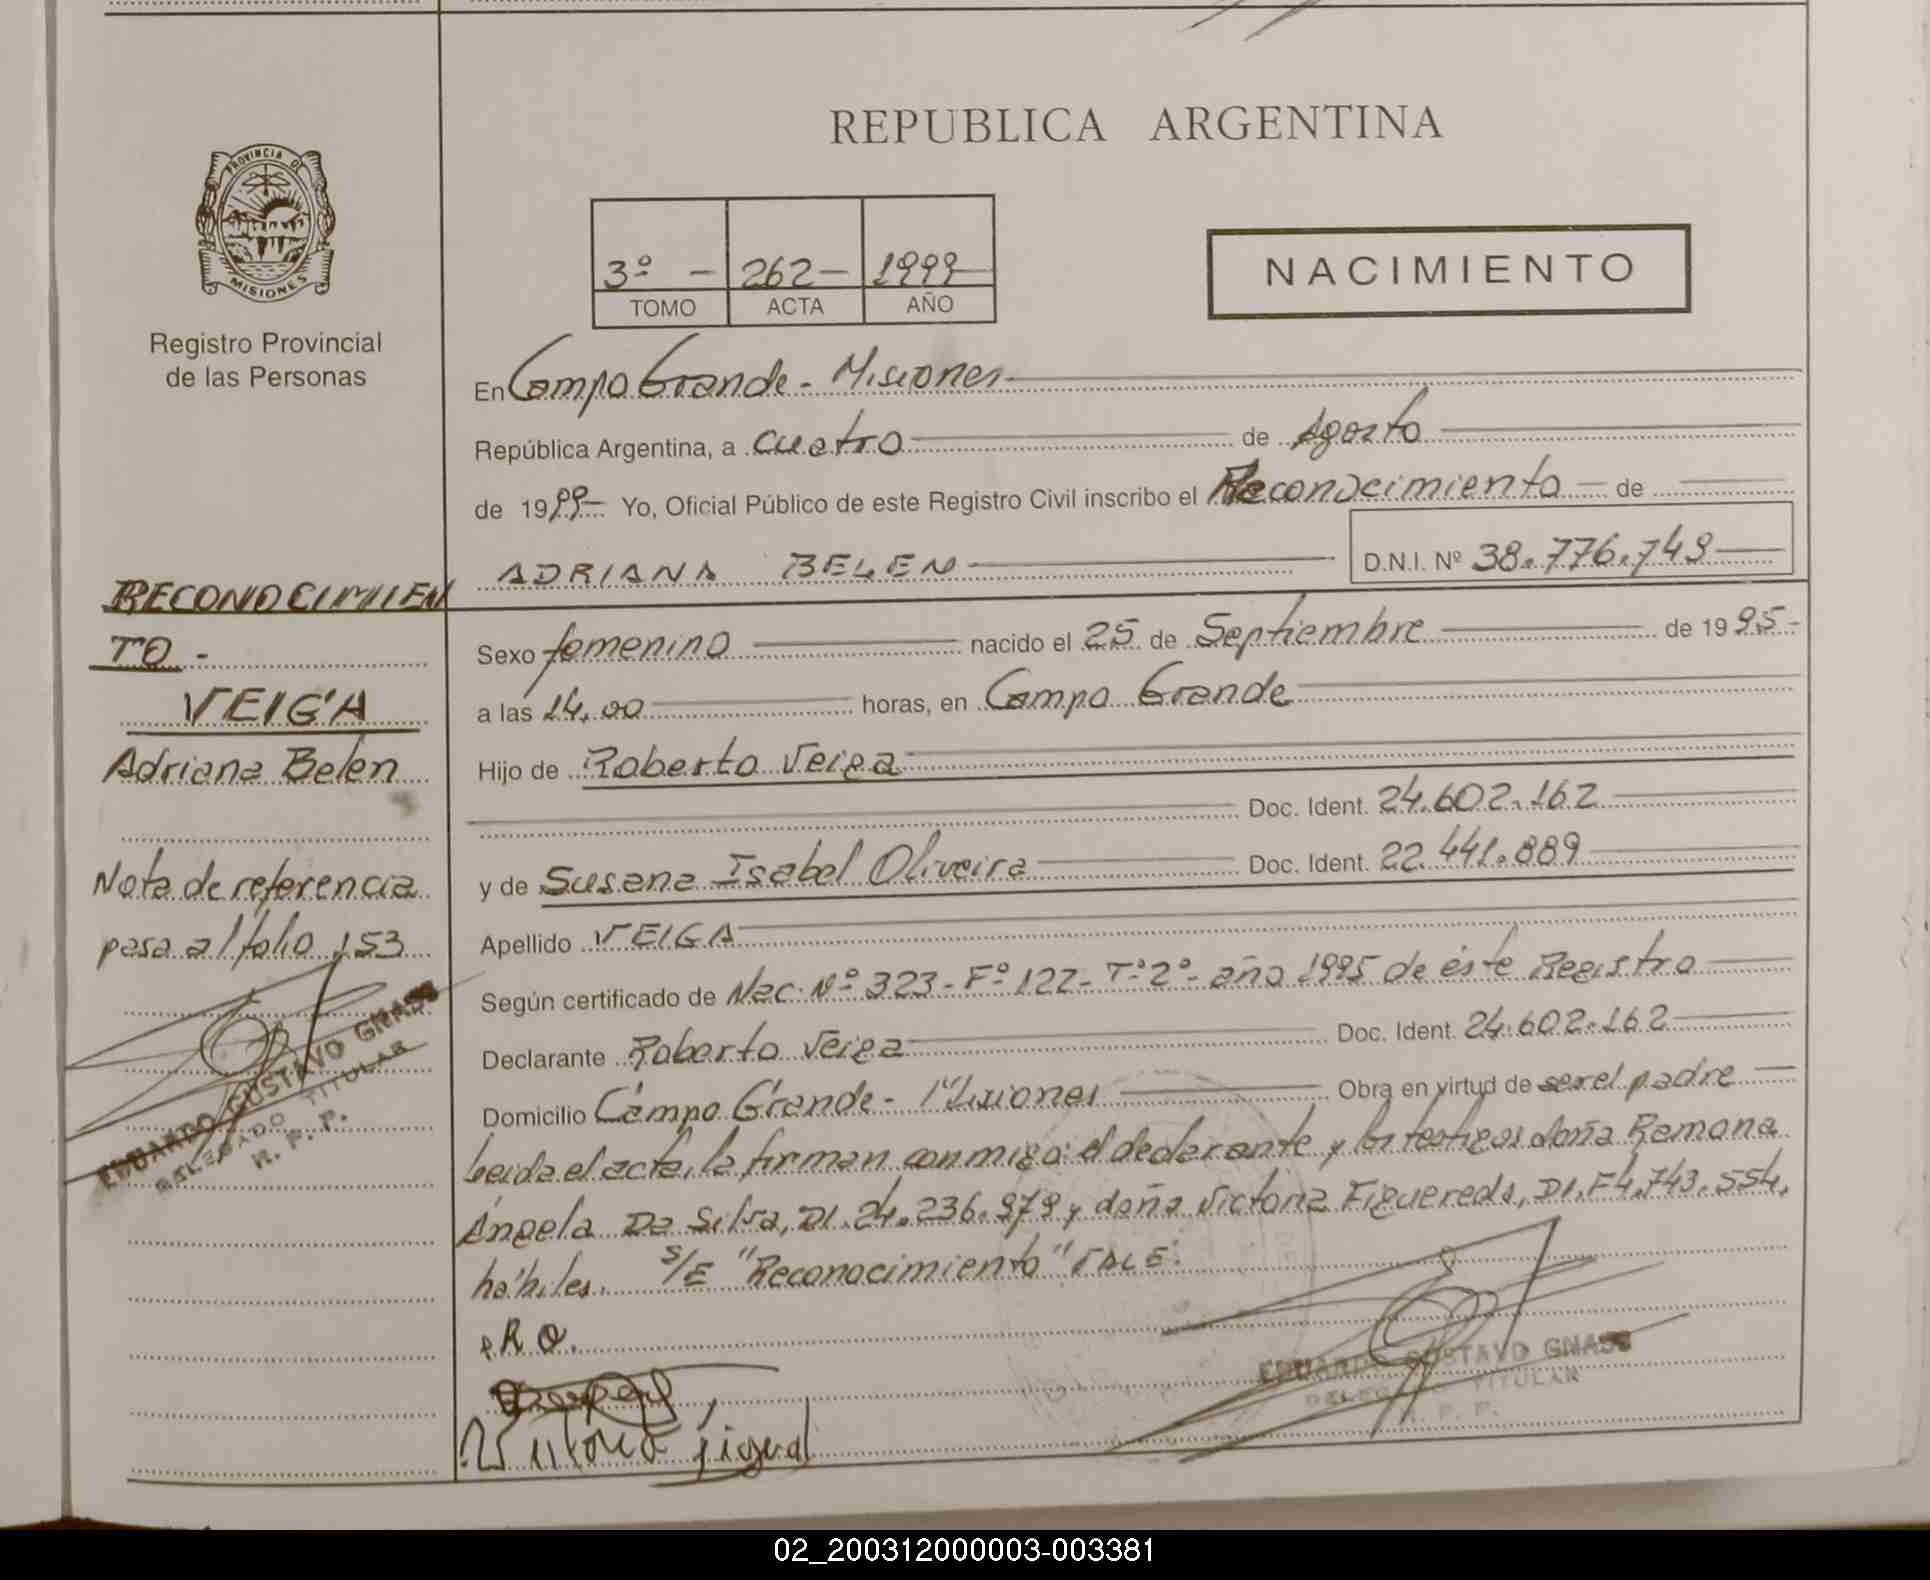 REPUBLICA ARGENTINA
PROVINCIA DE
MISIONES
Registro Provincial
de las Personas
3º - 262- 1999
TOMO ACTA AÑO
NACIMIENTO
En Campo Grande - Misiones
República Argentina, a cuatro de Agosto
de 1999- Yo, Oficial Público de este Registro Civil inscribo el Reconocimiento de
ADRIANA BELEN D.N.I. Nº 38.776.749
RECONOCIMIEN
TO -
VEIGA
Adriana Belén
Nota de referencia
pasa al folio 153
EDUARDO GUSTAVO GNASS
DELEGADO TITULAR
R. P. P.
Sexo femenino nacido el 25 de Septiembre de 1995-
a las 14,00 horas, en Campo Grande
Hijo de Roberto Veiga
Doc. Ident. 24.602.162
y de Susana Isabel Oliveira Doc. Ident. 22.441.889
Apellido VEIGA
Según certificado de Nac. Nº 323 - Fº 122 - Tº 2º - año 1995 de éste Registro
Declarante Roberto Veiga Doc. Ident. 24.602.162
Domicilio Campo Grande - Misiones Obra en virtud de ser el padre
Leída el acta, la firman conmigo: el declarante y los testigos doña Ramona
Ángela Da Silva, DI. 24.236.979 y doña Victoria Figueredo, DI. F4.743.554,
hábiles. S/E "Reconocimiento" VALE.
R O.
Victoria figued
EDUARDO GUSTAVO GNASS
DELEGADO TITULAR
R. P. P.
02_200312000003-003381